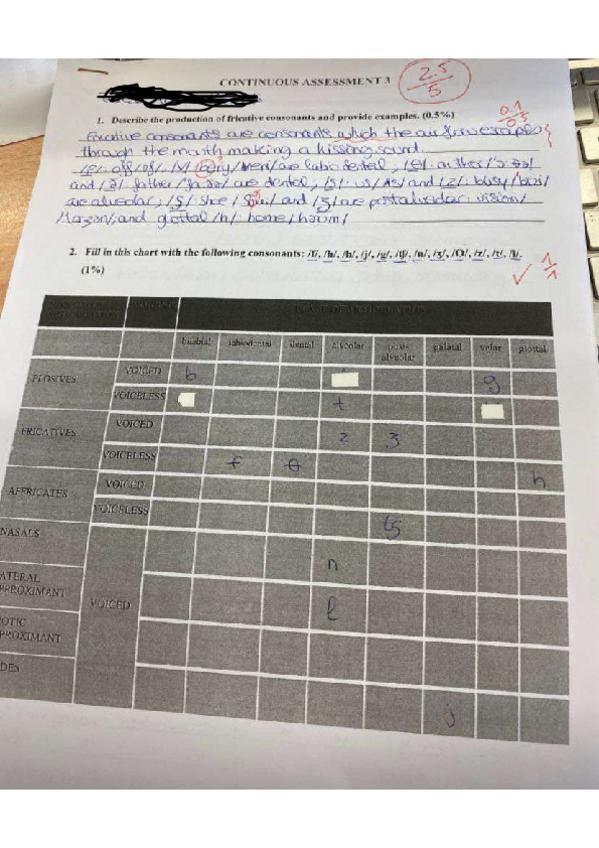 CONTINUOUS ASSESSMENT 3
2.5/5
1. Describe the production of fricative consonants and provide examples. (0.5%)
0.1/0.5
Fricative consonants are consonants which the air flow escapes
through the mouth making a kissing sound.
/f/: off /ɒf/, /v/
/are labio dental, /θ/: author /
and /ð/ father / are dental, /s/: us /ʌs/ and /z/: busy /bɪzi/
are alveolar, /ʃ/ shoe / and /ʒ/ are postalveolar: vision/
and glottal /h/: home /həʊm/
2. Fill in this chart with the following consonants:
(1%)
1/1
PLACE OF ARTICULATION
bilabial labiodental dental alveolar post-alveolar palatal velar glottal
PLOSIVES VOICED b g
VOICELESS t
FRICATIVES VOICED z ʒ
VOICELESS f θ h
AFFRICATES VOICED
VOICELESS tʃ
NASALS n
LATERAL APPROXIMANT VOICED l
ROTIC APPROXIMANT
DES j